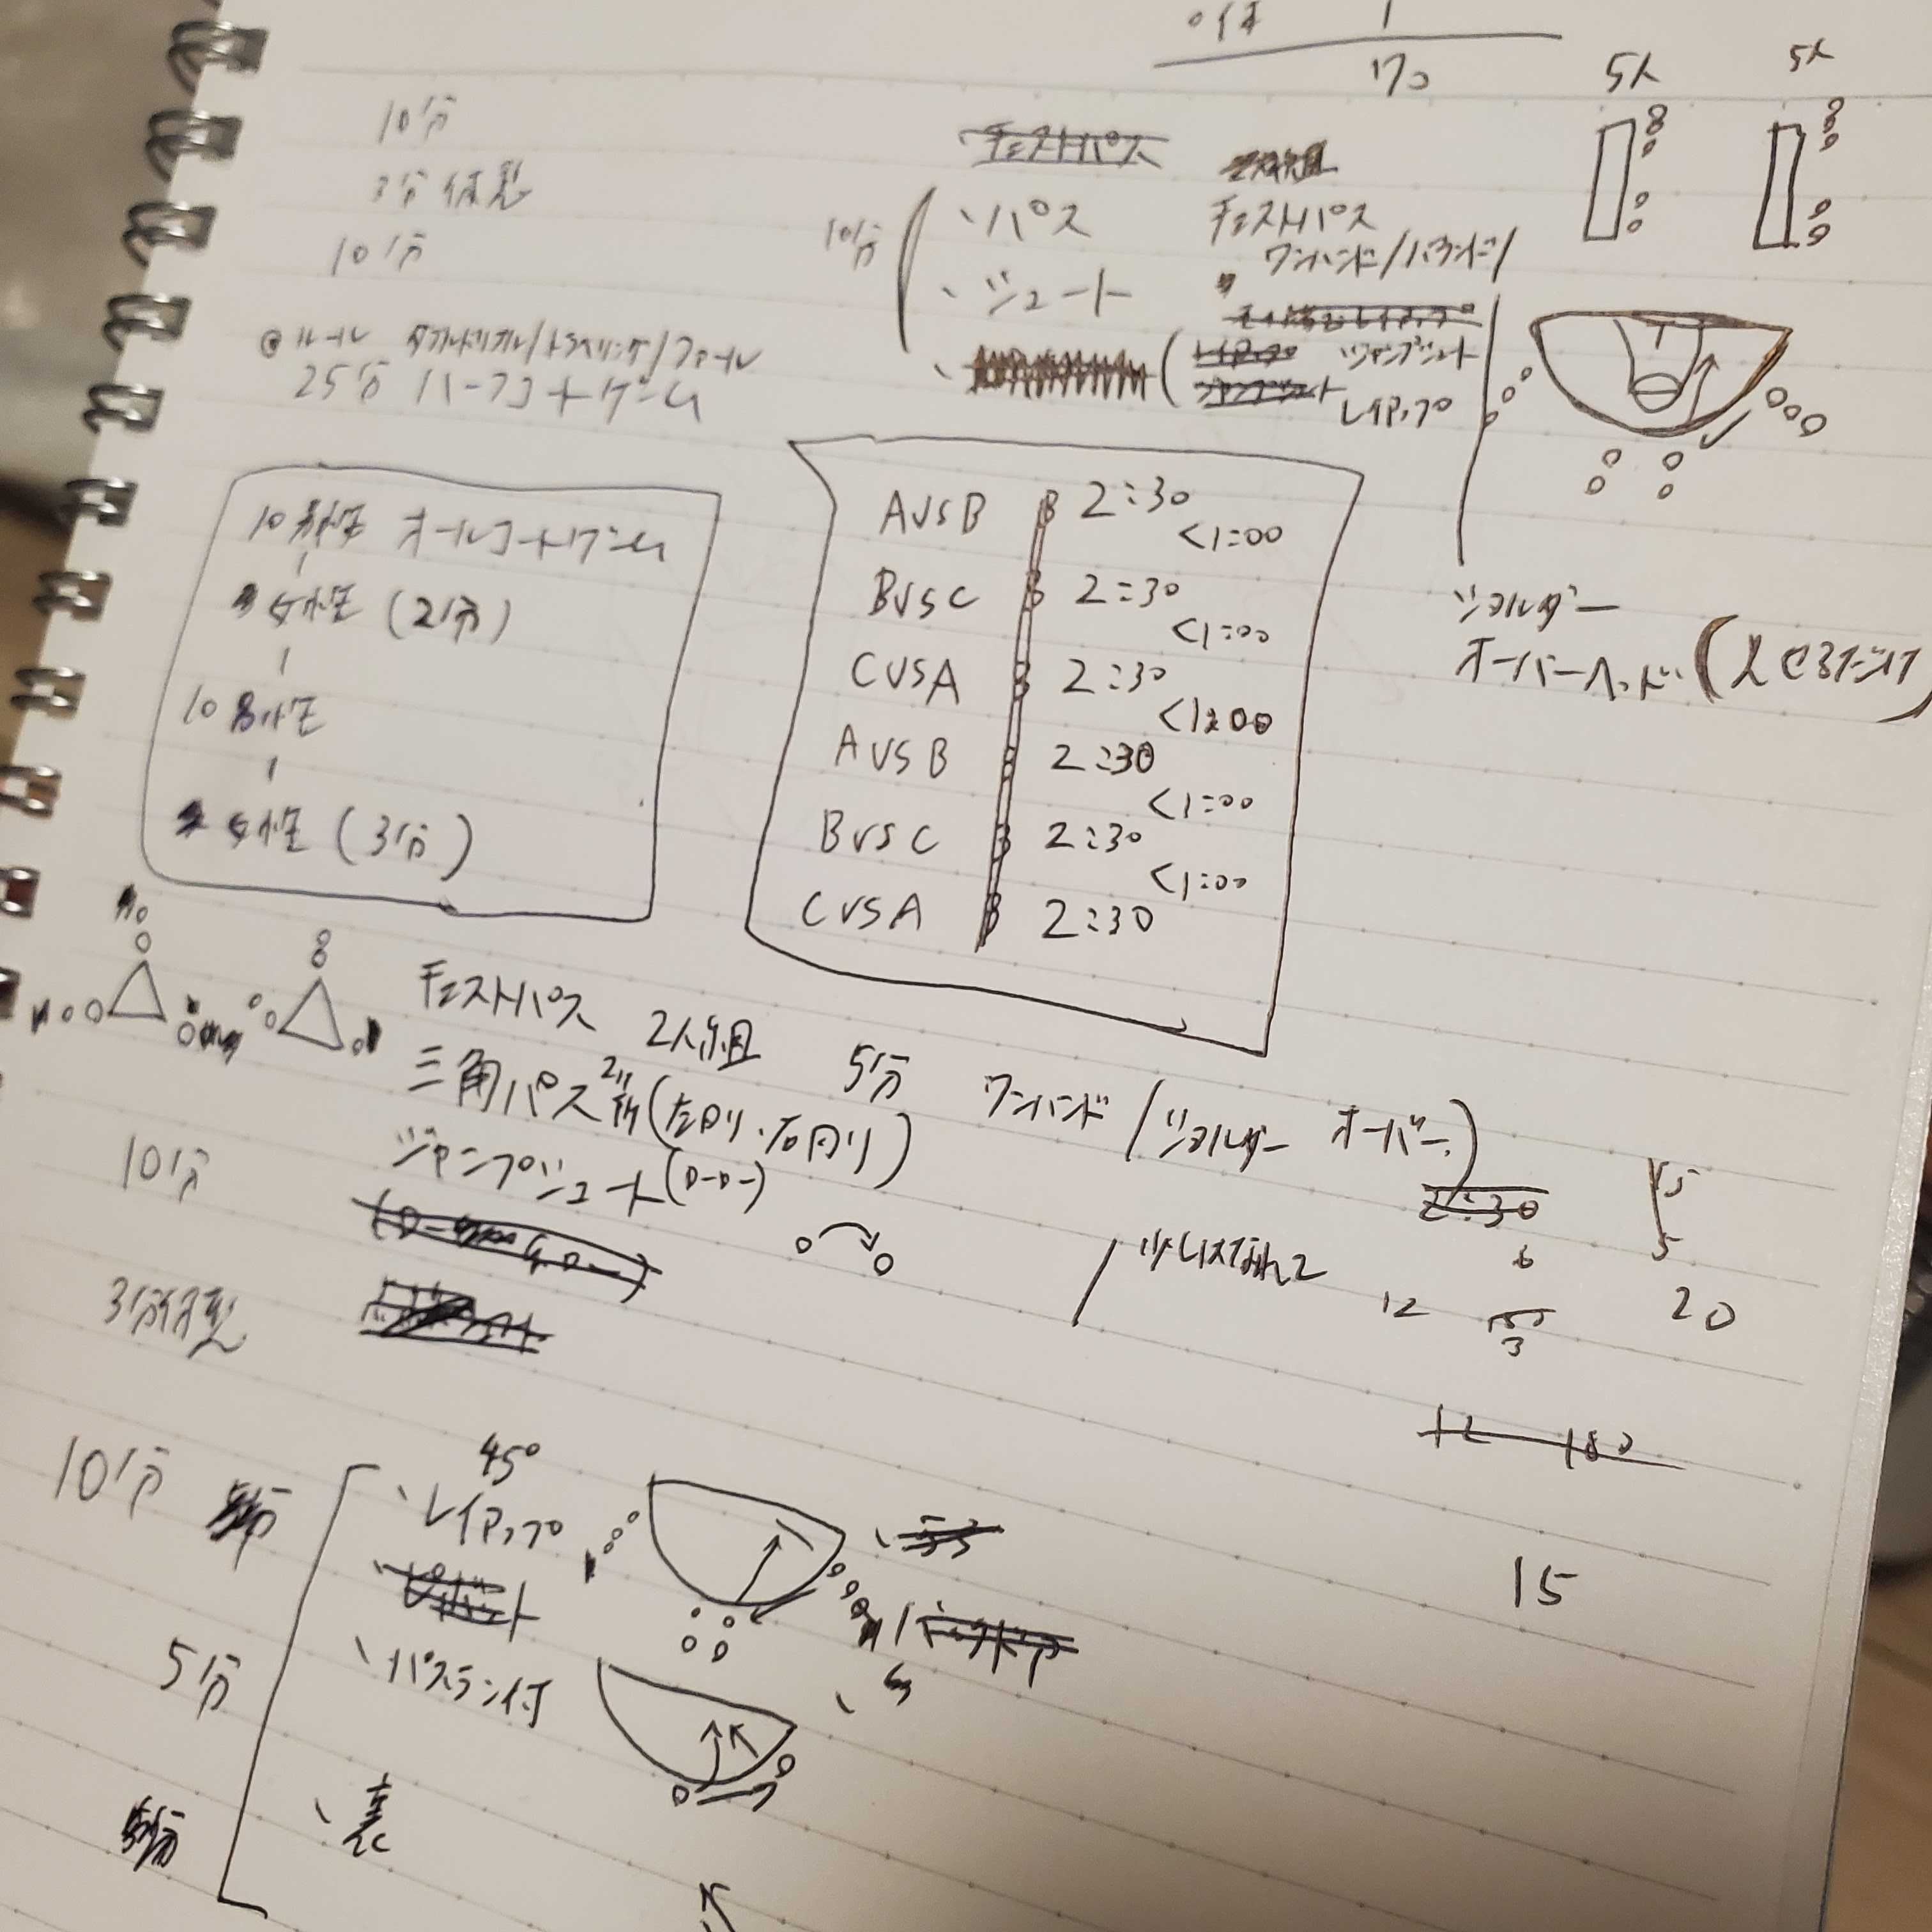 170
5人 5人
10分
3分休憩
10分
チェストパス
10分
、パス チェストパス
ワンハンド/バウンド/
、シュート
ジャンプシュート
レイアップ
@ルール ダブルドリブル/トラベリング/ファール
25分 ハーフコートゲーム
10男性 オールコートゲーム
女性(2分)
10男性
女性(3分)
AVSB 2:30
<1:00
BVSC 2:30
<1:00
CVSA 2:30
<1:00
AVSB 2:30
<1:00
BVSC 2:30
<1:00
CVSA 2:30
ショルダー
オーバーヘッド(見せるだけ)
チェストパス 2人組 5分 ワンハンド(ショルダー オーバー)
三角パス(左回り・右回り)
10分 ジャンプシュート(ローロー)
2:30
15
5
20
6
12
3
3分休憩
12 180
15
10分
45°
、レイアップ
5分 、パスラン付
5分 、表